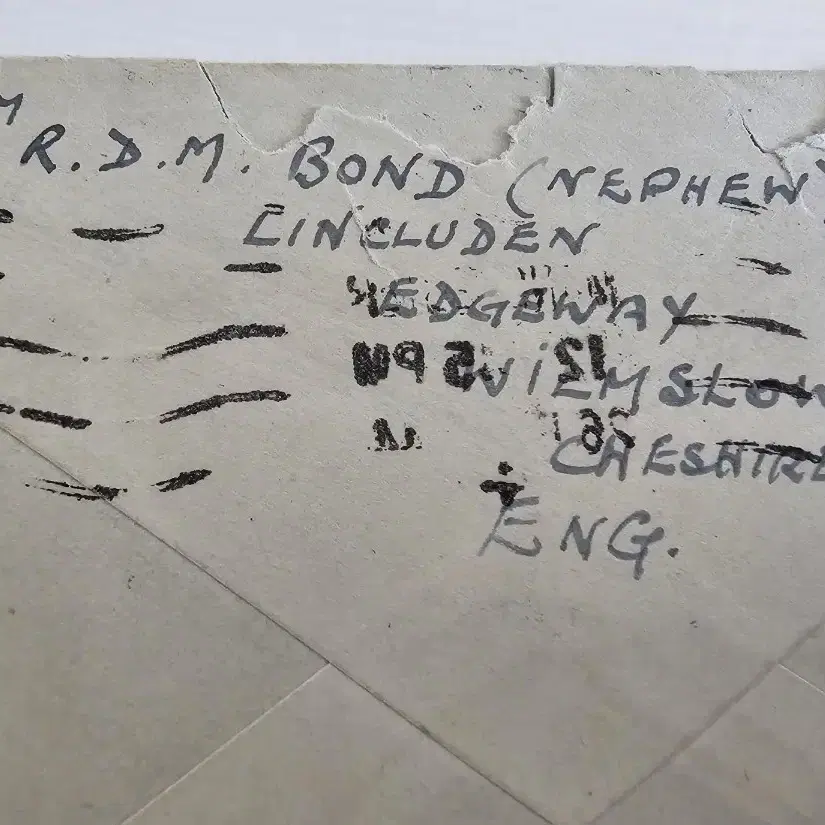 M R.D.M. BOND (NEPHEW)
LINCLUDEN
EDGEWAY
WILMSLOW
CHESHIRE
ENG.